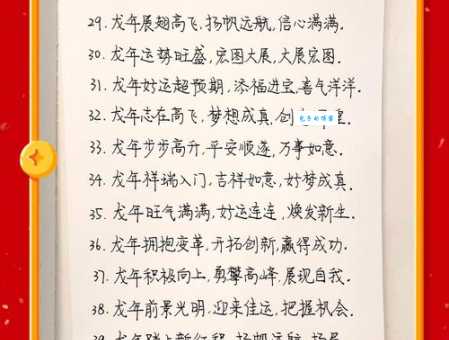 29. 龙年展翅高飞，扬帆远航，信心满满.
30. 龙年运势旺盛，宏图大展，大展宏图.
31. 龙年好运超预期，添福进宝，喜气洋洋.
32. 龙年志在高飞，梦想成真，创
33. 龙年步步高升，平安顺遂，万事如意.
34. 龙年祥瑞入门，吉祥如意，好梦成真.
35. 龙年旺气满满，好运连连，焕发新生.
36. 龙年拥抱变革，开拓创新，赢得成功.
37. 龙年积极向上，勇攀高峰，展现自我.
38. 龙年前景光明，迎来佳运，把握机会.